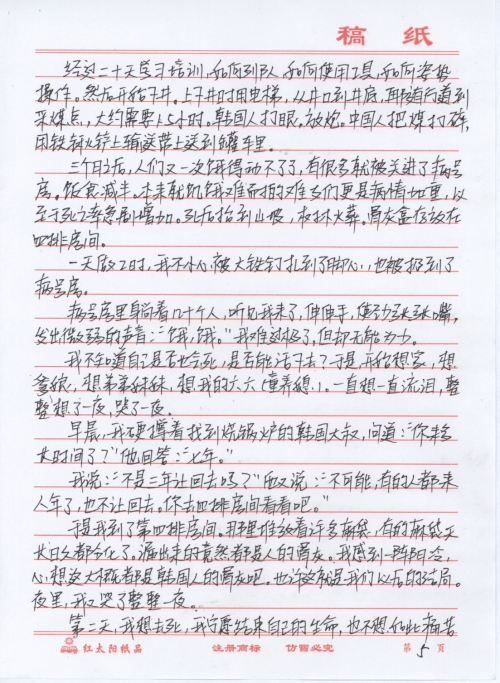 稿 纸
经过二十天学习培训,如何列队,如何使用工具,如何姿势
操作。然后开始下井。上下井时用电梯,从井口到井底,再随巷道到
采煤点,大约需要1.5小时。韩国人打眼。放炮。中国人把煤打碎,
用铁锹铲上输送带上送到罐车里。
三个月之后,人们又一次饿得动不了了,有很多就被关进了病号
房。饭食减半。本来就饥饿难而挨的难友们更是病情加重,以
至于死亡率急剧增加。死后抬到山坡,
火葬。骨灰盒存放在
四排房间。
一天放工时,我不小心被大铁钉扎到了脚心,也被扔到了
病号房。
病号房里身躺着几十个人,听见我来了,伸伸手,
嘴,
发出微弱的声音:“饿,饿。”我难过极了,但却无能为力。
我不知道自己是否也会死,是否能活下去?于是,开始想家,想
爹娘,想弟弟妹妹,想我的六六(童养媳)。一直想一直流泪,整
整想了一夜,哭了一夜。
早晨,我硬撑着找到烧锅炉的韩国大叔,问道:“你来多
长时间了?”他回答:“七年。”
我说:“不是二年让回去吗?”他又说:“不可能,有的人都来
八年了,也不让回去。你去四排房间看看吧。”
于是我到了第四排房间。那里堆放着许多麻袋,有的麻袋天
长日久都
化了,漏出来的竟然都是人的骨灰。我感到一阵阴冷,
心想这大概都是韩国人的骨灰吧。也许这就是我们以后的结局。
夜里,我又哭了整整一夜。
第二天,我想去死,我宁愿结束自己的生命,也不想如此痛苦
红太阳纸品 注册商标 仿冒必究 第 5 页